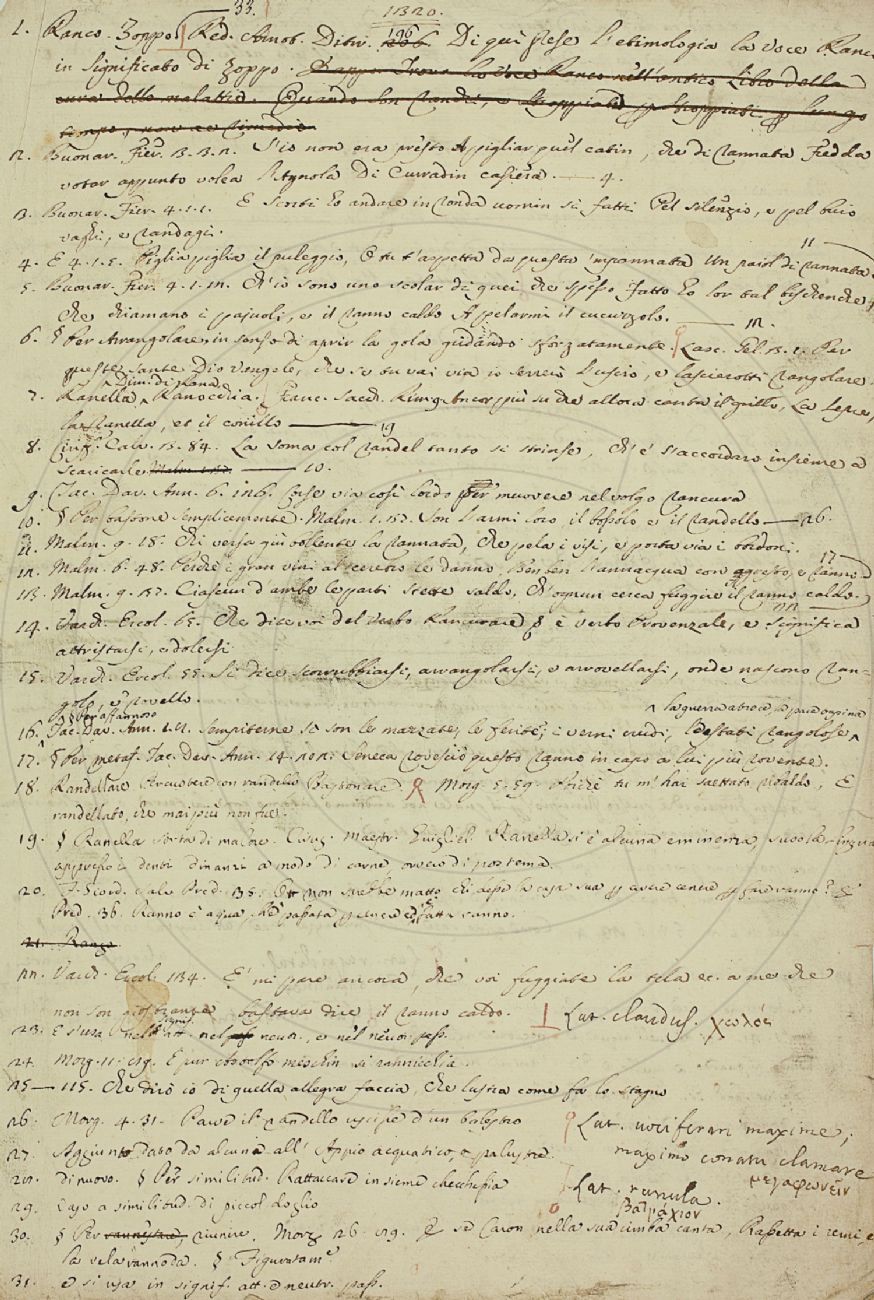 33. 1320.
1. Ranco. Zoppo. Red. Annot. Ditir. 196 Di quì prese l'etimologia la voce Ranco
in significato di zoppo.
2. Buonar. Fier. 3. 3. 2. S'io non era presto A pigliar quel catin, che di rannata Fredda
votar appunto volea Agnola Di Curradin casiera. — 4.
3. Buonar. Fier. 4. 1. 1. E scorti Lo andare in ronda uomin sì fatti Pel silenzio, e pel buio
vaghi, e randagi.
4. E 4. 1. 5. Piglia piglia il puleggio, O tu t'aspetta da questa impannata Un paiol di rannata 11
5. Buonar. Fier. 4. 1. 12. Ch'io sono uno scolar di quei che spesso Fatto ho lor tal
che chiamano i pajuoli, e il ranno caldo A pelarmi il cucuzzolo. — 12.
6. § Per Arrangolare, in senso di aprir la gola gridando sforzatamente. Lasc. Gel. 3. 1. Per
queste sante Dio Vengole, che se tu vai via io serrerò l'uscio, e lascierotti rangolare.
7. Ranella Dim. di Rana. Ranocchia. Franc. Sacch. Rim. Ancor più su che allora canta il grillo, La lepre,
la Ranella, et il conillo — 19
8. Ciriff. Calv. 3. 84. La soma col randel tanto si strinse, Ch'e' s'accordaro insieme a
scaricalle — 10.
9. Tac. Dav. Ann. 6. 126. Cose via così lordo per muovere nel volgo rancura
10. § Per bastone semplicemente. Malm. 1. 53. Son l'armi loro il bossolo e il randello — 26.
11. Malm. 9. 18. Chi versa giù bollente la rannata, Che pela i visi, e porta via i bordoni.
12. Malm. 6. 48. Perchè i gran vini al cerebro le danno, Ben ben l'annacqua con agresto, e ranno. 17
13. Malm. 9. 53. Ciascun d'ambe le parti stette saldo, Ch'ognun cerca fuggire il ranno caldo. 22
14. Varch. Ercol. 65. Che dite voi del verbo Rancurare? è verbo Provenzale, e significa
attristarsi, e dolersi
15. Varch. Ercol. 55. Si dice scorrubbiarsi, arrangolarsi, e arrovellarsi, onde nascono ran-
golo, e rovello.
^ la guerra atroce, la pace
16. § Per affannoso Tac. Dav. Ann. 1. 21. Sempiterne sì son le mazzate, le ferite, i verni crudi, l'estati rangolose ^
17. § Per metaf. Tac. Dav. Ann. 14. 202. Seneca rovesciò questo ranno in capo a lui più rovente.
18. Randellare Percuotere con randello Bastonare. Morg. 5. 59. Perchè tu m'hai saettato ribaldo, E
randellato, che mai più non fue.
19. § Ranella sorta di malore. Cirug. Maestr. Guigliel. Ranella si è alcuna eminenza, sotto la lingua
appresso i denti dinanzi a modo di carne ovvero di postema.
20. F. Giord. Pred. 35. Or non sarebbe matto chi ardesse la casa sua p avere cenere p fare ranno? E
Pred. 36. Ranno è aqua, ch'è passata p cenere ed è fatta ranno.
21. Rango
22. Varch. Ercol. 134. E' mi pare ancora, che voi fuggiate la tela ec. a me che
non son giostrante bastava dire il ranno caldo. Lat. claudus. χωλός
23. E s'usa nell'att. signif. nel neutr. e nel neutr. pass.
24. Morg. 11. 119. E pur Astolfo meschin si rannicchia.
25 — 115. Che dirò io di quella allegra faccia, Che lustra come fa lo stagno
26. Morg. 4. 31. Parve il randello uscisse d'un balestro Lat. vociferari maxime,
27. Aggiunto dato da alcuni all'Appio acquatico, o palustre. maximo conatu clamare
28. di nuovo. § Per similitud. Rattaccare insieme checchessia μεγαφωνεῖν
29. Vaso a similitud. di piccol doglio Lat. ranula. βατράχιον
30. § Per riunire. Morg. 26. 89. E se Caron nella sua cimba canta, Rassetta i remi, e
la vela rannoda. § Figuratam.e
31. e si usa in signif. att. e neutr. pass.